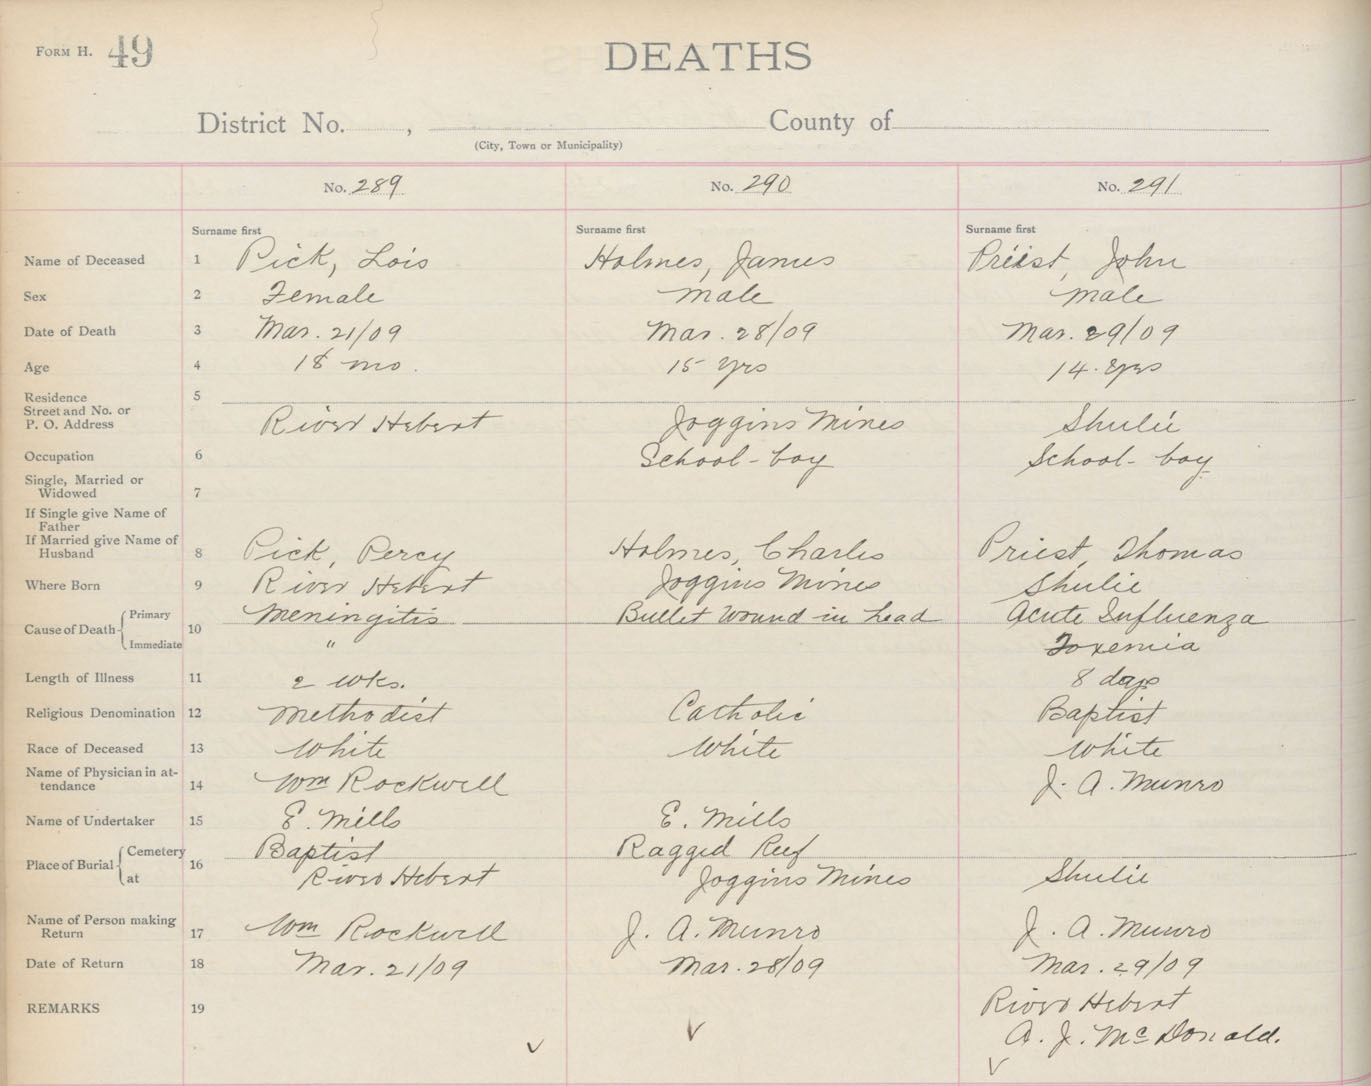 FORM H. 49
DEATHS
District No. , County of
(City, Town or Municipality)
No. 289 No. 290 No. 291
Surname first Surname first Surname first
Name of Deceased 1 Pick, Lois Holmes, James Priest, John
Sex 2 Female Male Male
Date of Death 3 Mar. 21/09 Mar. 28/09 Mar. 29/09
Age 4 18 mo. 15 yrs 14 yrs
Residence 5
Street and No. or
P. O. Address River Hebert Joggins Mines Shulie
Occupation 6 School-boy School-boy
Single, Married or
Widowed 7
If Single give Name of
Father
If Married give Name of
Husband 8 Pick, Percy Holmes, Charles Priest, Thomas
Where Born 9 River Hebert Joggins Mines Shulie
Cause of Death 10 Primary Meningitis Bullet wound in head Acute Influenza
Immediate " Toxemia
Length of Illness 11 2 wks. 8 days
Religious Denomination 12 Methodist Catholic Baptist
Race of Deceased 13 White White White
Name of Physician in at-
tendance 14 Wm Rockwell J. A. Munro
Name of Undertaker 15 E. Mills E. Mills
Place of Burial 16 Cemetery Baptist Ragged Reef
at River Hebert Joggins Mines Shulie
Name of Person making
Return 17 Wm Rockwell J. A. Munro J. A. Munro
Date of Return 18 Mar. 21/09 Mar. 28/09 Mar. 29/09
REMARKS 19 River Hebert
A. J. McDonald.